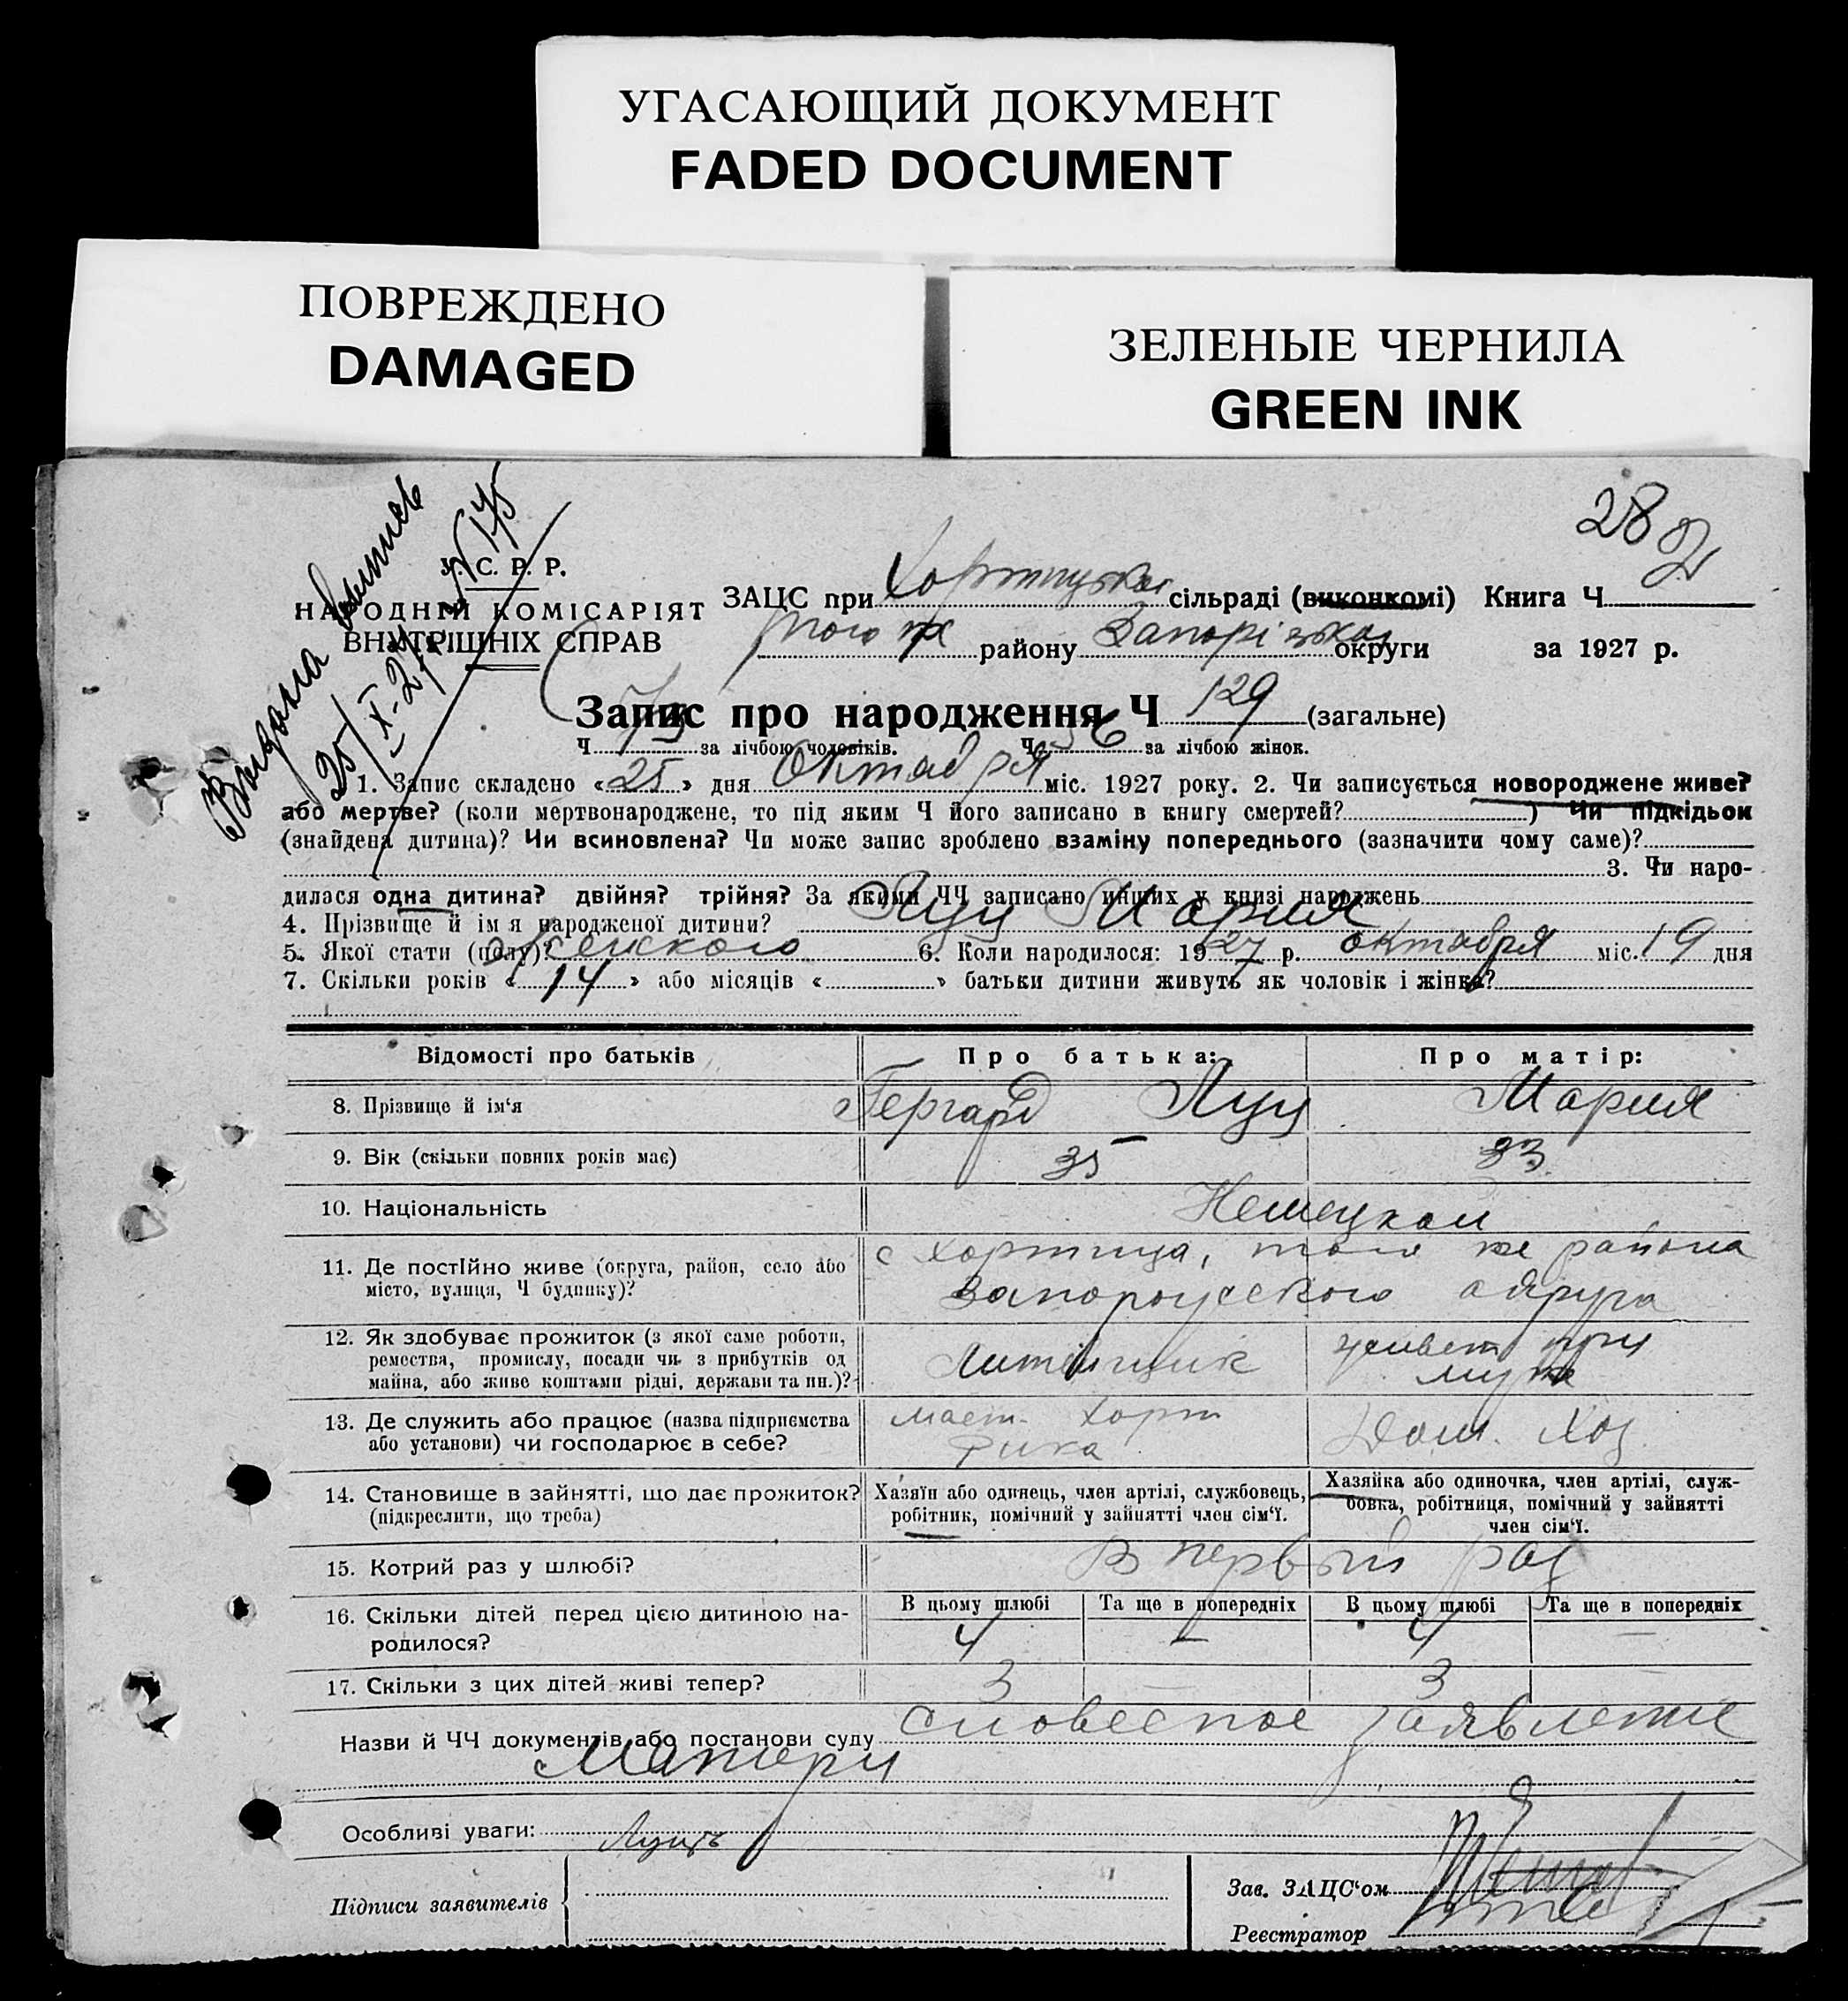 УГАСАЮЩИЙ ДОКУМЕНТ
FADED DOCUMENT
ПОВРЕЖДЕНО
DAMAGED
ЗЕЛЕНЫЕ ЧЕРНИЛА
GREEN INK
28
Выдана выпись
25/X-27
У. С. Р. Р.
НАРОДНІЙ КОМІСАРІЯТ
ВНУТРІШНІХ СПРАВ
ЗАЦС при Хортицькой сільраді (виконкомі) Книга Ч
того ж району Запорізької округи за 1927 р.
Запис про народження Ч 129 (загальне)
Ч 73 за лічбою чоловіків. Ч 56 за лічбою жінок.
1. Запис складено «25» дня Октября міс. 1927 року. 2. Чи записується новороджене живе?
або мертве? (коли мертвонароджене, то під яким Ч його записано в книгу смертей? ) Чи підкідьок
(знайдена дитина)? Чи всиновлена? Чи може запис зроблено взаміну попереднього (зазначити чому саме)?
3. Чи наро-
дилася одна дитина? двійня? трійня? За якими ЧЧ записано инших у книзі народжень
4. Прізвище й ім я народженої дитини? Луц Мария
5. Якої стати (полу)? женского 6. Коли народилося: 1927 р. октября міс. 19 дня
7. Скільки років «14» або місяців « » батьки дитини живуть як чоловік і жінка?
Відомості про батьків Про батька: Про матір:
8. Прізвище й ім‘я Гергард Луц Мария
9. Вік (скільки повних років має) 35 33
10. Національність Немецкой
11. Де постійно живе (округа, район, село або с Хортица, того же района
місто, вулиця, Ч будинку)? Запорожского округа
12. Як здобуває прожиток (з якої саме роботи,
ремества, промислу, посади чи з прибутків од
майна, або живе коштами рідні, держави та ин.)? Литейщик живет при муже
13. Де служить або працює (назва підприємства
або установи) чи господарює в себе? Хорт Дом. Хоз.
14. Становище в зайнятті, що дає прожиток?
(підкреслити, що треба)
Хазяїн або одинець, член артілі, службовець,
робітник, помічний у зайнятті член сім‘ї.
Хазяйка або одиночка, член артілі, служ-
бовка, робітниця, помічний у зайнятті
член сім‘ї.
15. Котрий раз у шлюбі? В первый раз
16. Скільки дітей перед цією дитиною на-
родилося?
В цьому шлюбі Та ще в попередніх В цьому шлюбі Та ще в попередніх
4 — 4 —
17. Скільки з цих дітей живі тепер? 3 — 3 —
Назви й ЧЧ документів або постанови суду словесное заявление
матери
Особливі уваги:
Луць
Підписи заявителів
Зав. ЗАЦС‘ом
Реєстратор